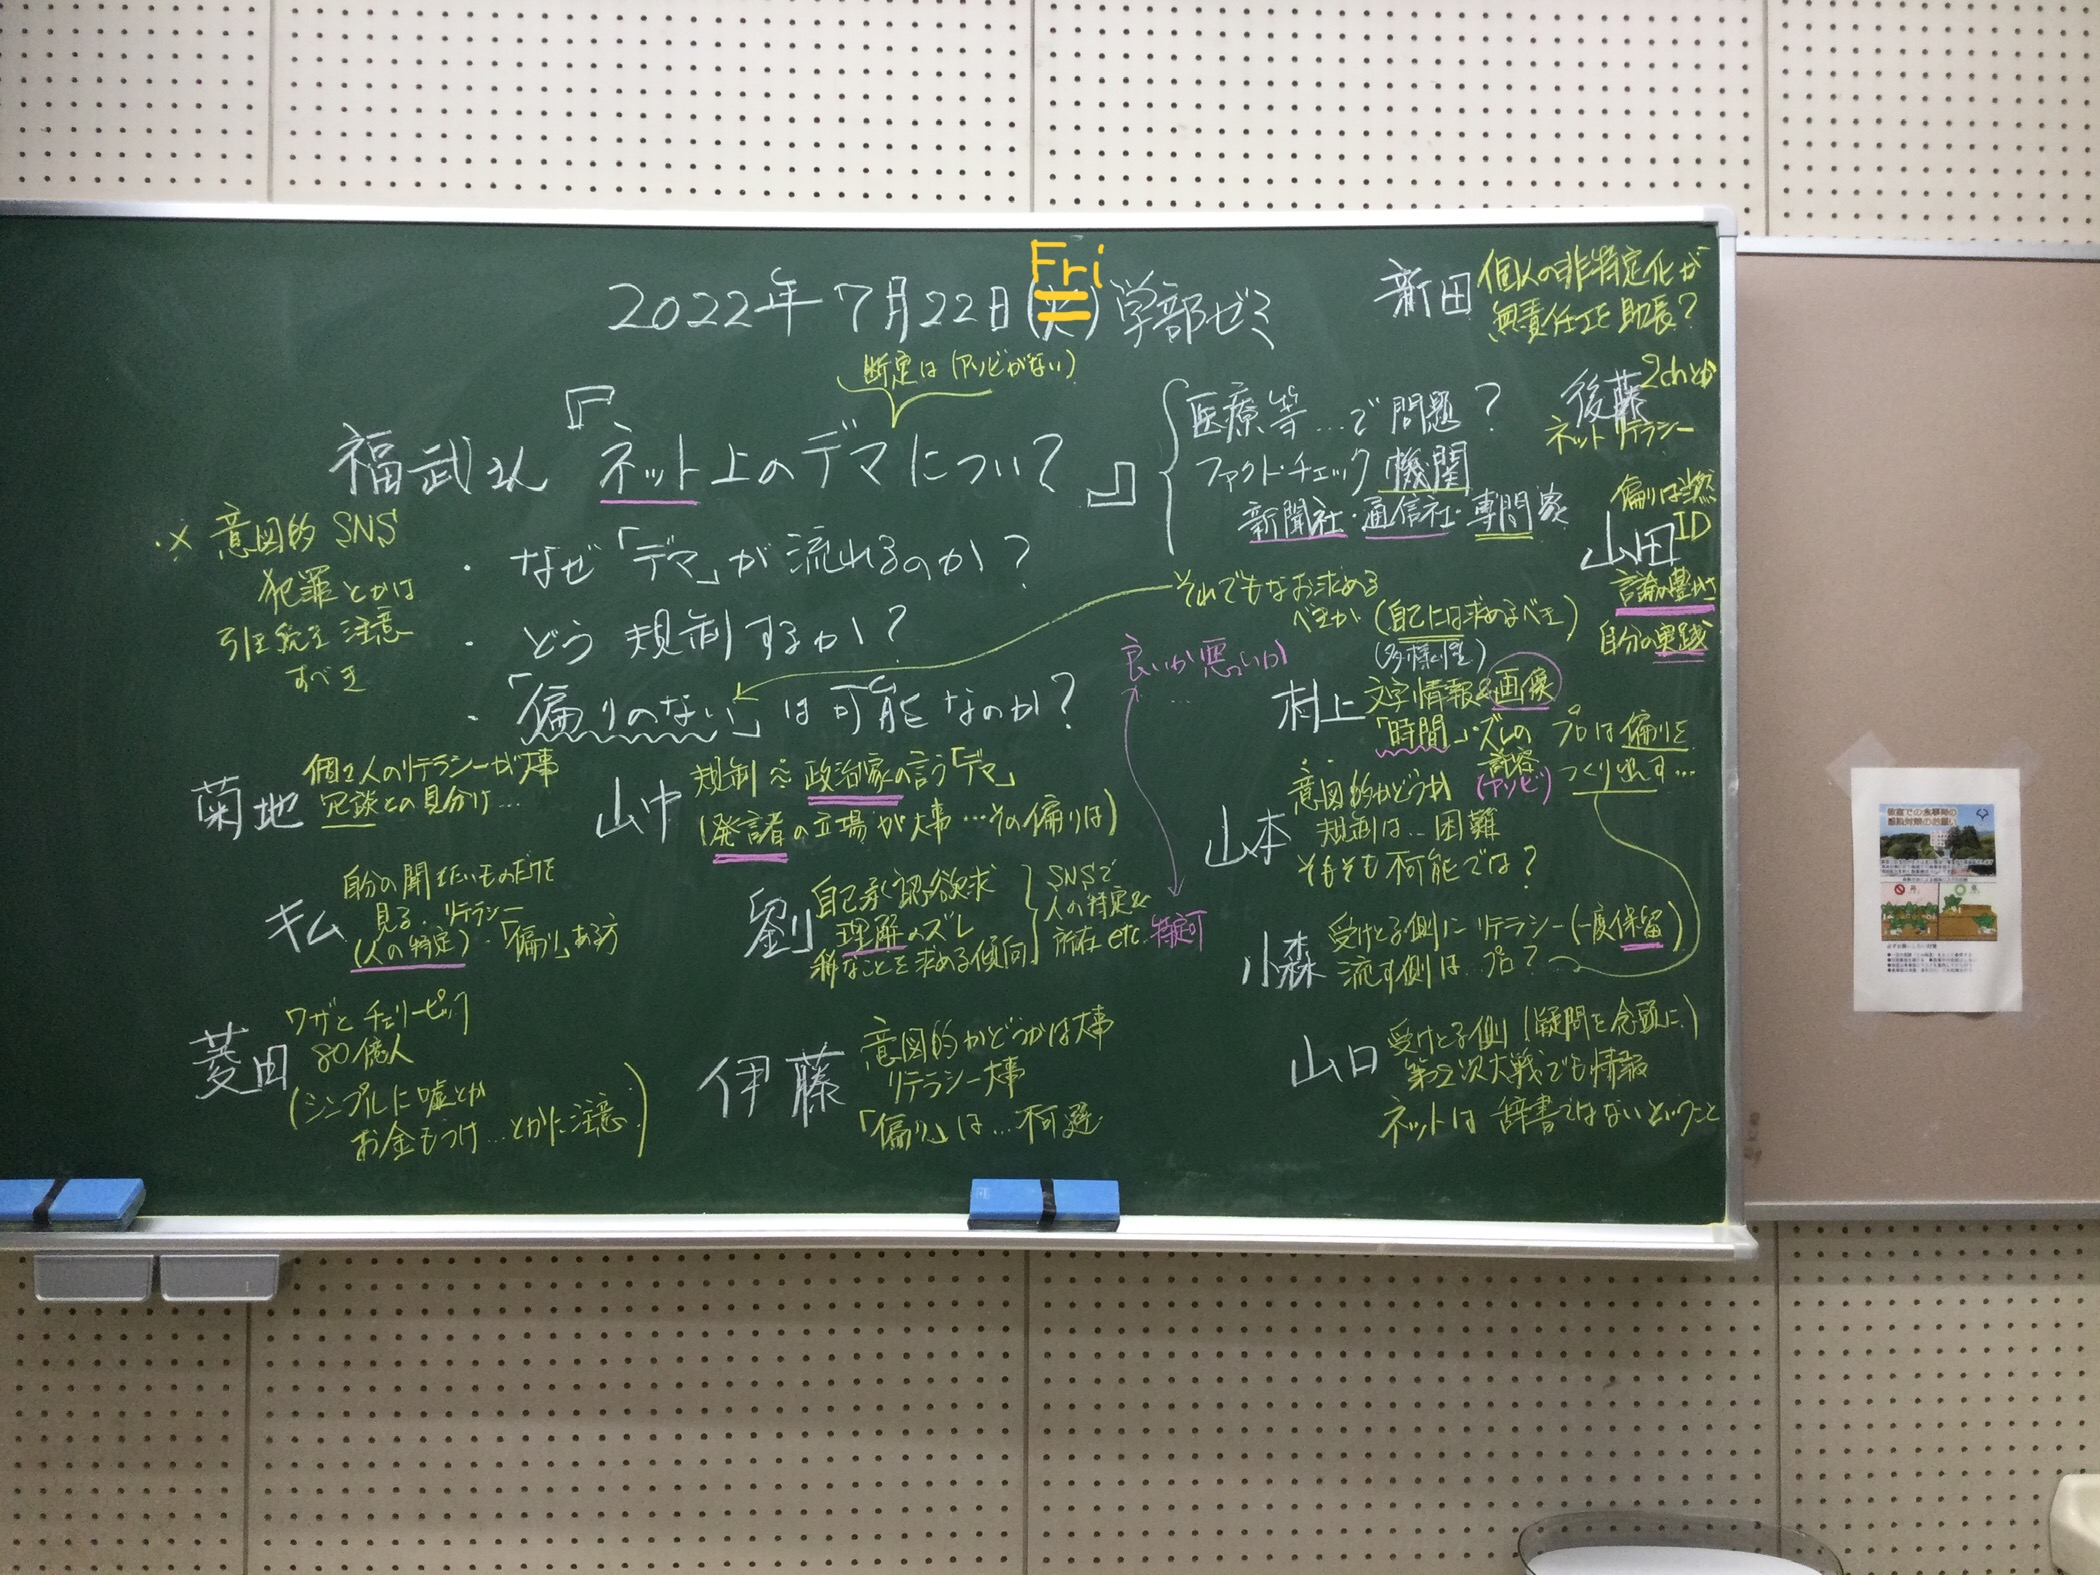 Fri
2022年7月22日(火)学部ゼミ
断定は(アソビがない)
福武さん『ネット上のデマについて』
・なぜ「デマ」が流れるのか?
・どう規制するか?
・「偏りのない」は可能なのか?
医療等…で問題?
ファクト・チェック機関
新聞社・通信社・専門家
それでもなお求める
べきか(自己には求めるべき)
(多様性)
良いか悪いか
…
・× 意図的SNS
犯罪とかは
引き続き注意
すべき
菊地
個々人のリテラシーが大事
冗談との見分け…
キム
自分の聞きたいものだけを
見る・リテラシー
(人の特定)・「偏り」ある方
菱田
ワザとチェリーピック
80億人
(シンプルに嘘とか
お金もうけ…とかに注意)
山中
規制 政治家の言う「デマ」
(発言者の立場が大事…その偏りは)
劉
自己承認欲求
理解のズレ
なことを求める傾向
SNSで
人の特定&
所在etc.
特定可
伊藤
意図的かどうかは大事
リテラシー大事
「偏り」は…不可避
新田
個人の非特定化が
無責任を助長?
後藤
2chとか
ネットリテラシー
山田
偏りは当然
ID
言論の豊かさ
自分の実践
村上
文字情報&画像
「時間」・ズレの
許容
(アソビ)
プロは偏りを
つくり出す…
山本
意図的かどうか
規制は…困難
そもそも不可能では?
小森
受けとる側にリテラシー(一度保留)
流す側は…プロ?
山口
受けとる側(疑問を念頭に)
第2次大戦でも情報
ネットは辞書ではないということ